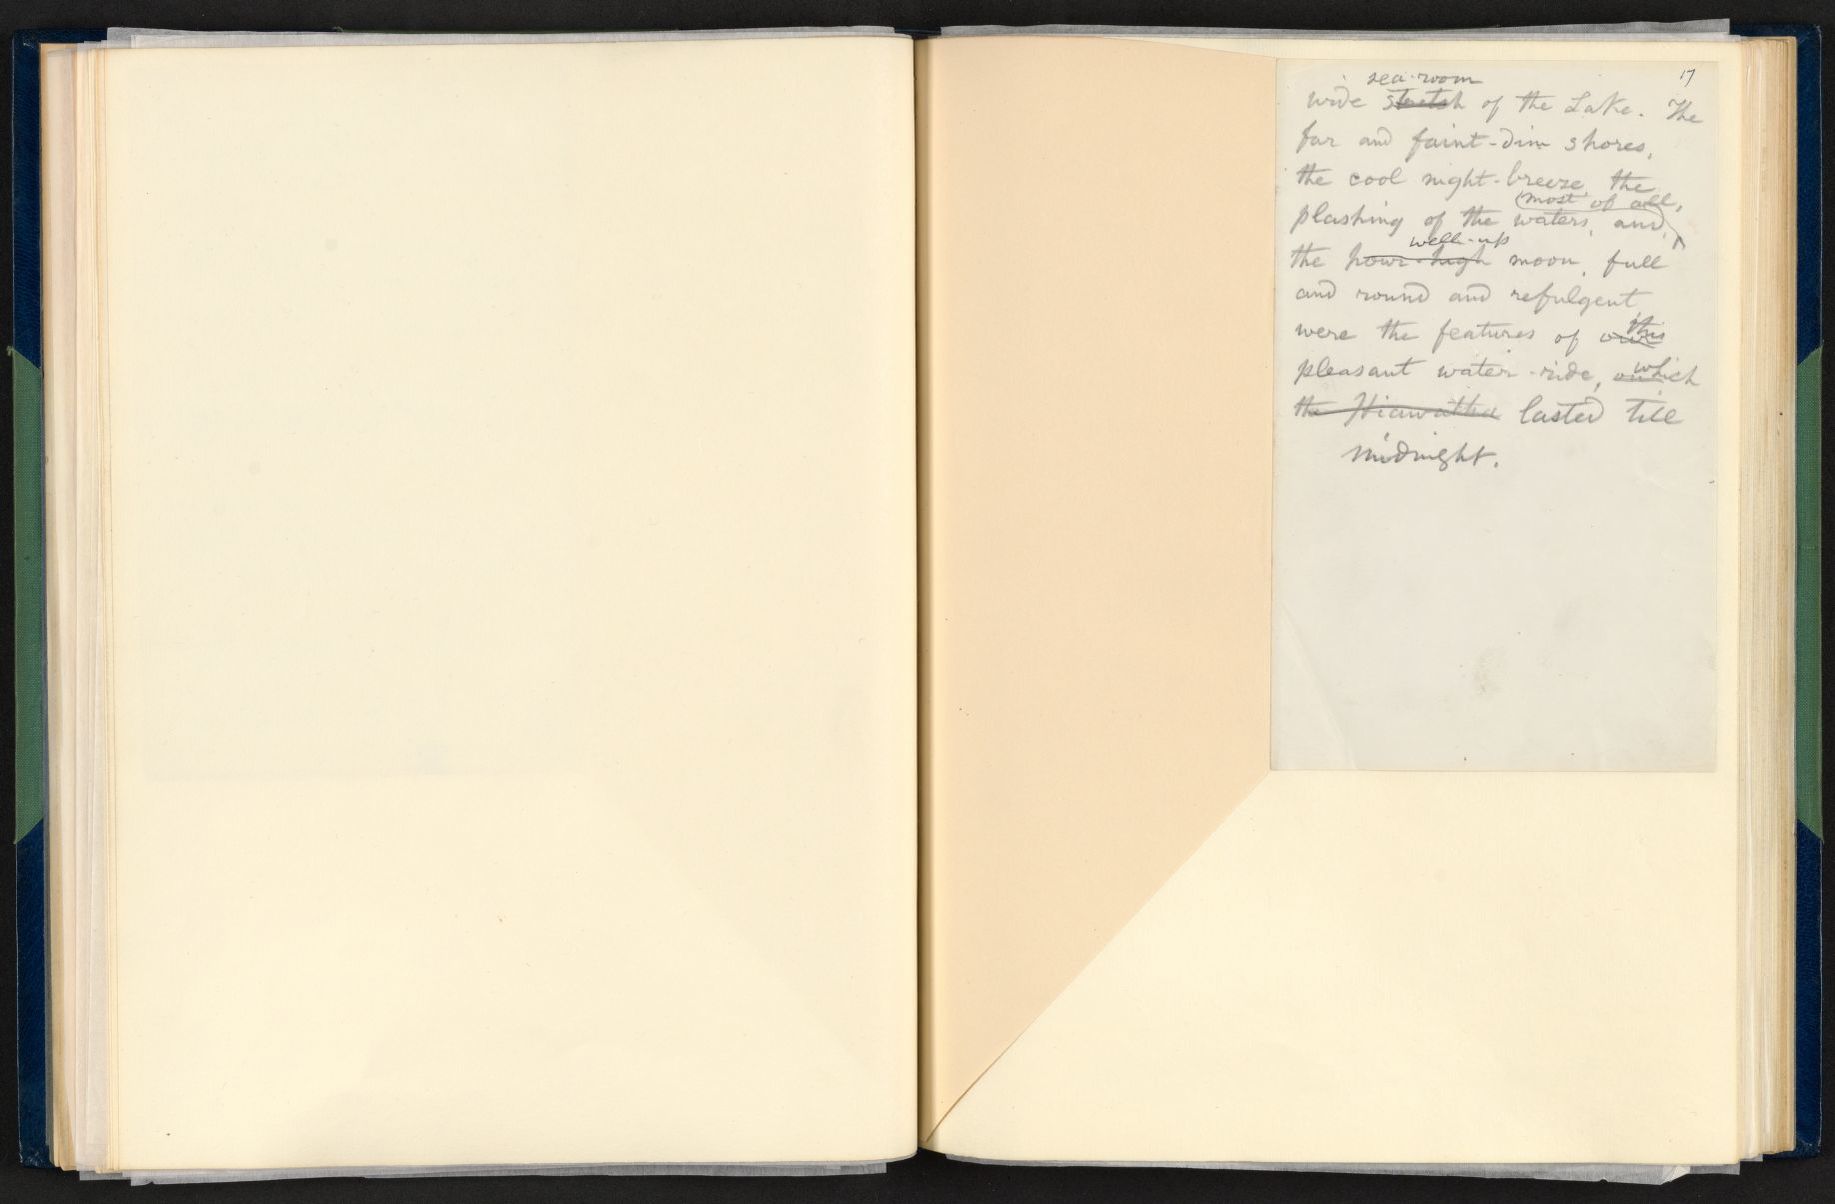 17
sea-room
wide stretch of the Lake. The
far and faint-dim shores,
the cool night-breeze, the
most of all,
plashing of the waters, and,
well-up
the hour-high moon, full
and round and refulgent
this
were the features of our
which
pleasant water-ride, on
the Hiawatha lasted till
midnight.